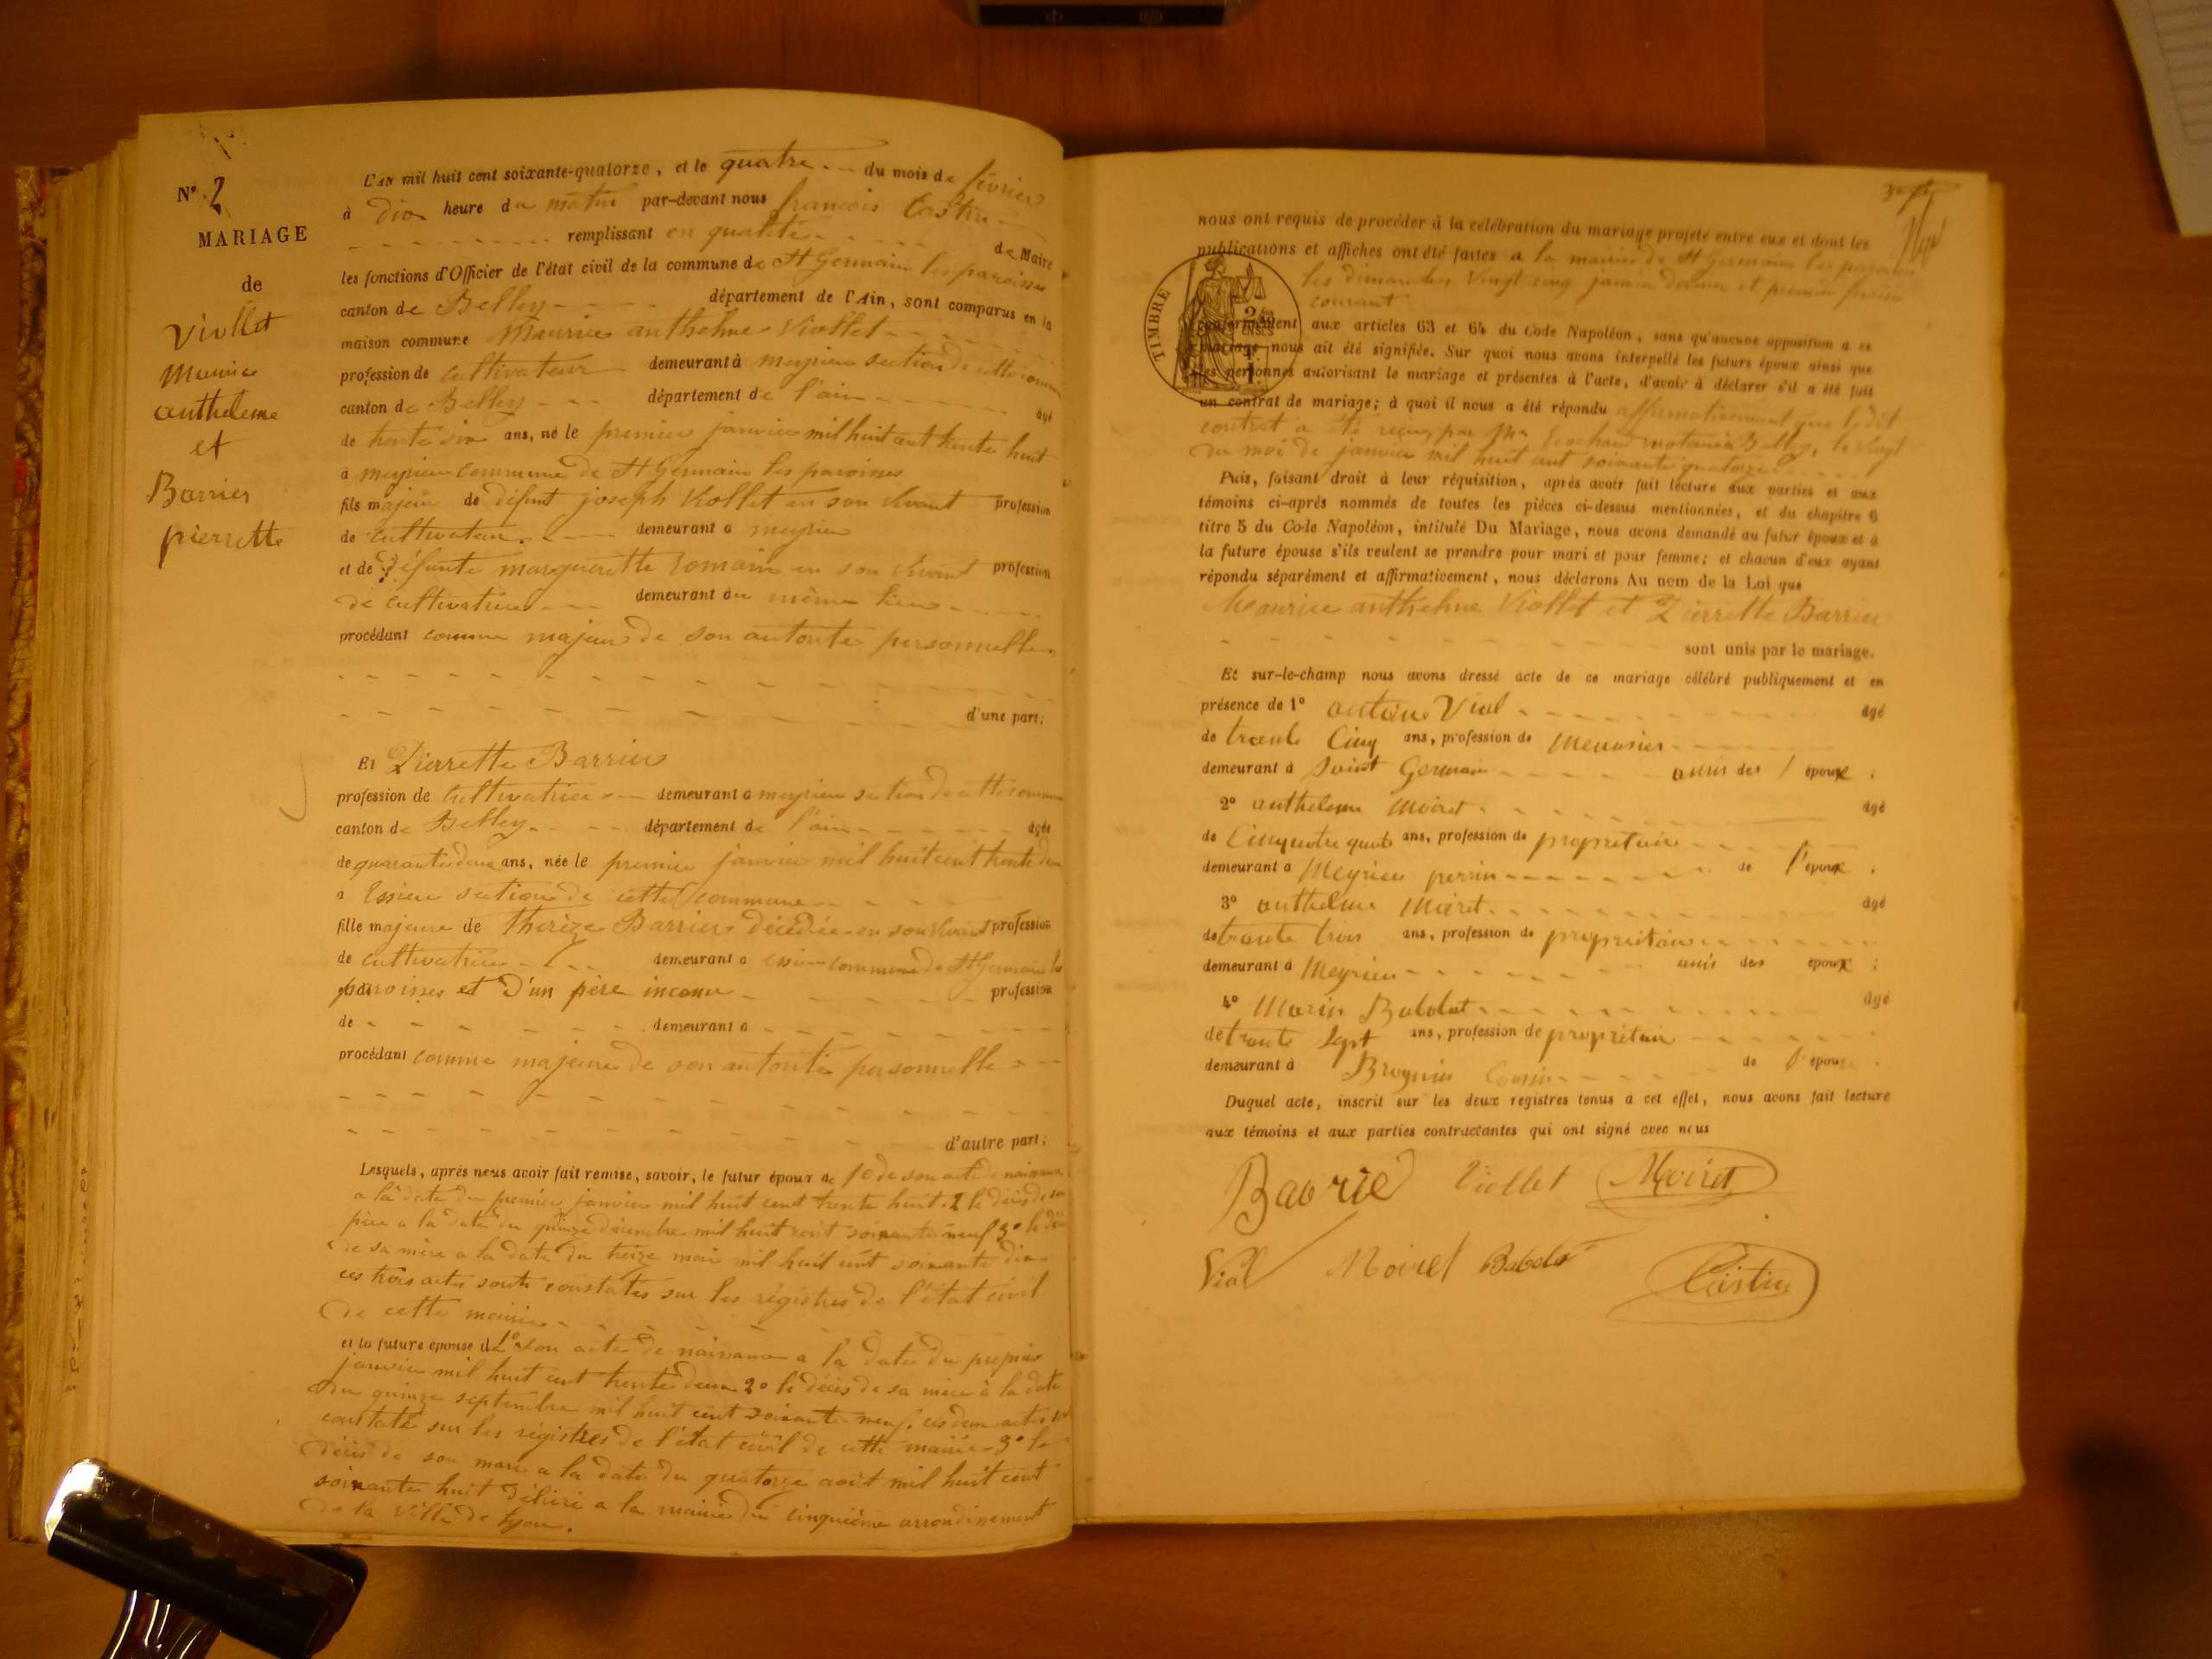 N° 2
MARIAGE
de
Viollet
Maurice
anthelme
et
Barrier
pierrette
L'AN mil huit cent soixante-quatorze, et le quatre du mois de février
à dix heure du matin par-devant nous françois Castin
remplissant en qualité de Maire
les fonctions d'Officier de l'état civil de la commune de St Germain les paroisses
canton de Belley département de l'Ain, sont comparus en la
maison commune Maurice anthelme Viollet
profession de cultivateur demeurant à meyrieu section de cette commune
canton de Belley département de l'ain âgé
de trente six ans, né le premier janvier mil huit cent trente huit
à meyrieu commune de St Germain les paroisses
fils majeur de défunt joseph Viollet en son vivant profession
de cultivateur demeurant a meyrieu
et de défunte marguerette Romain en son vivant profession
de cultivatrice demeurant au même lieu
procédant comme majeur de son autorité personnelle
d'une part;
Et Pierrette Barrier
profession de cultivatrice demeurant a meyrieu section de cette commune
canton de Belley département de l'ain âgée
de quarante deux ans, née le premier janvier mil huit cent trente deux
a Essieu section de cette commune
fille majeure de thérèze Barrier décédée en son vivant profession
de cultivatrice demeurant a essieu commune de St Germain les
paroisses et d'un père inconu profession
de demeurant a
procédant comme majeure de son autorité personnelle
d'autre part;
Lesquels, après nous avoir fait remise, savoir, le futur époux de 1° de son acte de naissance
a la date du premier janvier mil huit cent trente huit. 2 le décès de son
père a la date du quinze décembre mil huit cent soixante neuf 3° le décès
de sa mère a la date du treize mai mil huit cent soixante dix
ces trois actes sont constatés sur les régistres de l'état civil
de cette mairie
et la future épouse de 1° son acte de naissance a la date du premier
janvier mil huit cent trente deux 2° le décès de sa mère à la date
du quinze septembre mil huit cent soixante neuf. ces deux actes
constaté sur les régistres de l'état civil de cette mairie 3° le
décès de son mari a la date du quatorze août mil huit cent
soixante huit délivré a la mairie du cinquième arrondissement
de la ville de Lyon.
nous ont requis de procéder à la célébration du mariage projeté entre eux et dont les
publications et affiches ont été faites a la mairie de St Germain les paroisses
les dimanches vingt cinq janvier dernier et premier février
courant
TIMBRE
conformément aux articles 63 et 64 du Code Napoléon, sans qu'aucune opposition a ce
mariage nous ait été signifiée. Sur quoi nous avons interpellé les futurs époux ainsi que
les personnes autorisant le mariage et présentes à l'acte, d'avoir à déclarer s'il a été fait
un contrat de mariage; à quoi il nous a été répondu affirmativement que le dit
contrat a été reçu par Me notaire à Belley, le vingt
du moi de janvier mil huit cent soixante quatorze
Puis, faisant droit à leur réquisition, après avoir fait lecture aux parties et aux
témoins ci-après nommés de toutes les pièces ci-dessus mentionnées, et du chapitre 6
titre 5 du Code Napoléon, intitulé Du Mariage, nous avons demandé au futur époux et à
la future épouse s'ils veulent se prendre pour mari et pour femme; et chacun d'eux ayant
répondu séparément et affirmativement, nous déclarons Au nom de la Loi que
Maurice anthelme Viollet et Pierrette Barrier
sont unis par le mariage.
Et sur-le-champ nous avons dressé acte de ce mariage célébré publiquement et en
présence de 1° antoine Vial âgé
de trente Cinq ans, profession de Menusier
demeurant à Saint Germain amis des époux;
2° anthelme Moiret âgé
de Cinquante quatre ans, profession de propriétaire
demeurant a Meyrieu perrin de l'époux;
3° anthelme Moiret âgé
de trente trois ans, profession de propriétaire
demeurant à Meyrieu amis des époux;
4° Marin Babolat âgé
de trente sept ans, profession de propriétaire
demeurant à Brognin Cousin de l'épouse.
Duquel acte, inscrit sur les deux registres tenus à cet effet, nous avons fait lecture
aux témoins et aux parties contractantes qui ont signé avec nous
Barrié Viollet Moiret
Vial Moiret Babolat Castin